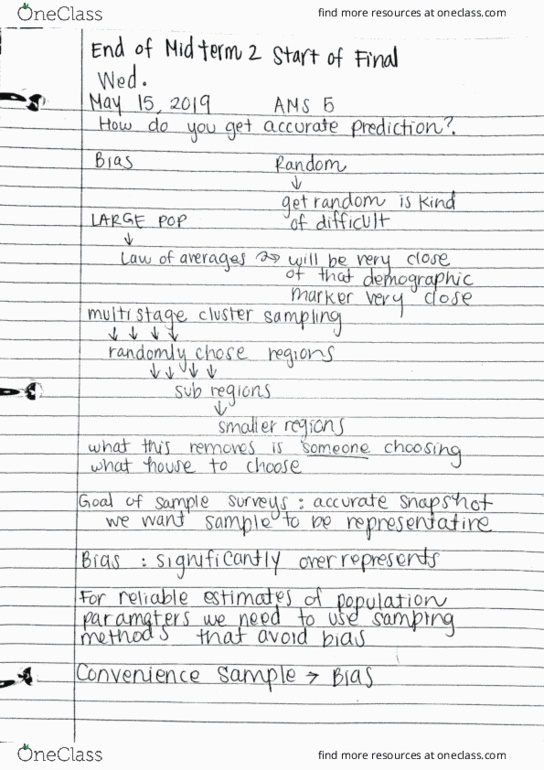 OneClass find more resources at oneclass.com
End of Midterm 2 Start of Final
Wed.
May 15, 2019 AMS 5
How do you get accurate prediction?.
Bias Random
↓
get random is kind
LARGE POP of difficult
↓
Law of averages will be very close
of that demographic
marker very close
multistage cluster sampling
↓ ↓ ↓ ↓
randomly chose regions
↓ ↓ ↓ ↓
sub regions
↓
smaller regions
what this removes is someone choosing
what house to choose
Goal of sample surveys : accurate snapshot
we want sample to be representative
Bias : significantly over represents
For reliable estimates of population
paramaters we need to use sampting
methods that avoid bias
Convenience Sample → Bias
OneClass find more resources at oneclass.com